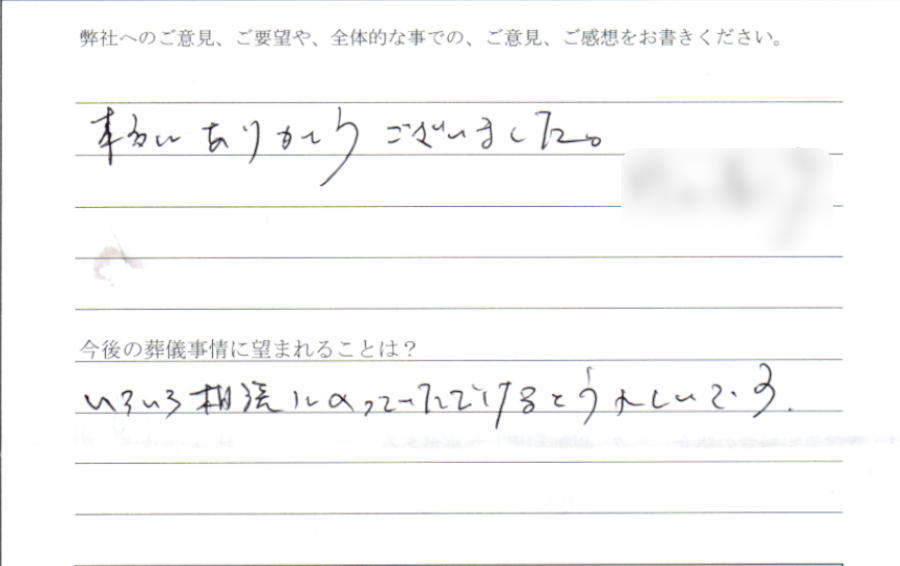 弊社へのご意見、ご要望や、全体的な事での、ご意見、ご感想をお書きください。
本当に ありがとう ございました。
今後の葬儀事情に望まれることは?
いろいろ相談にのっていただけるとうれしいです.